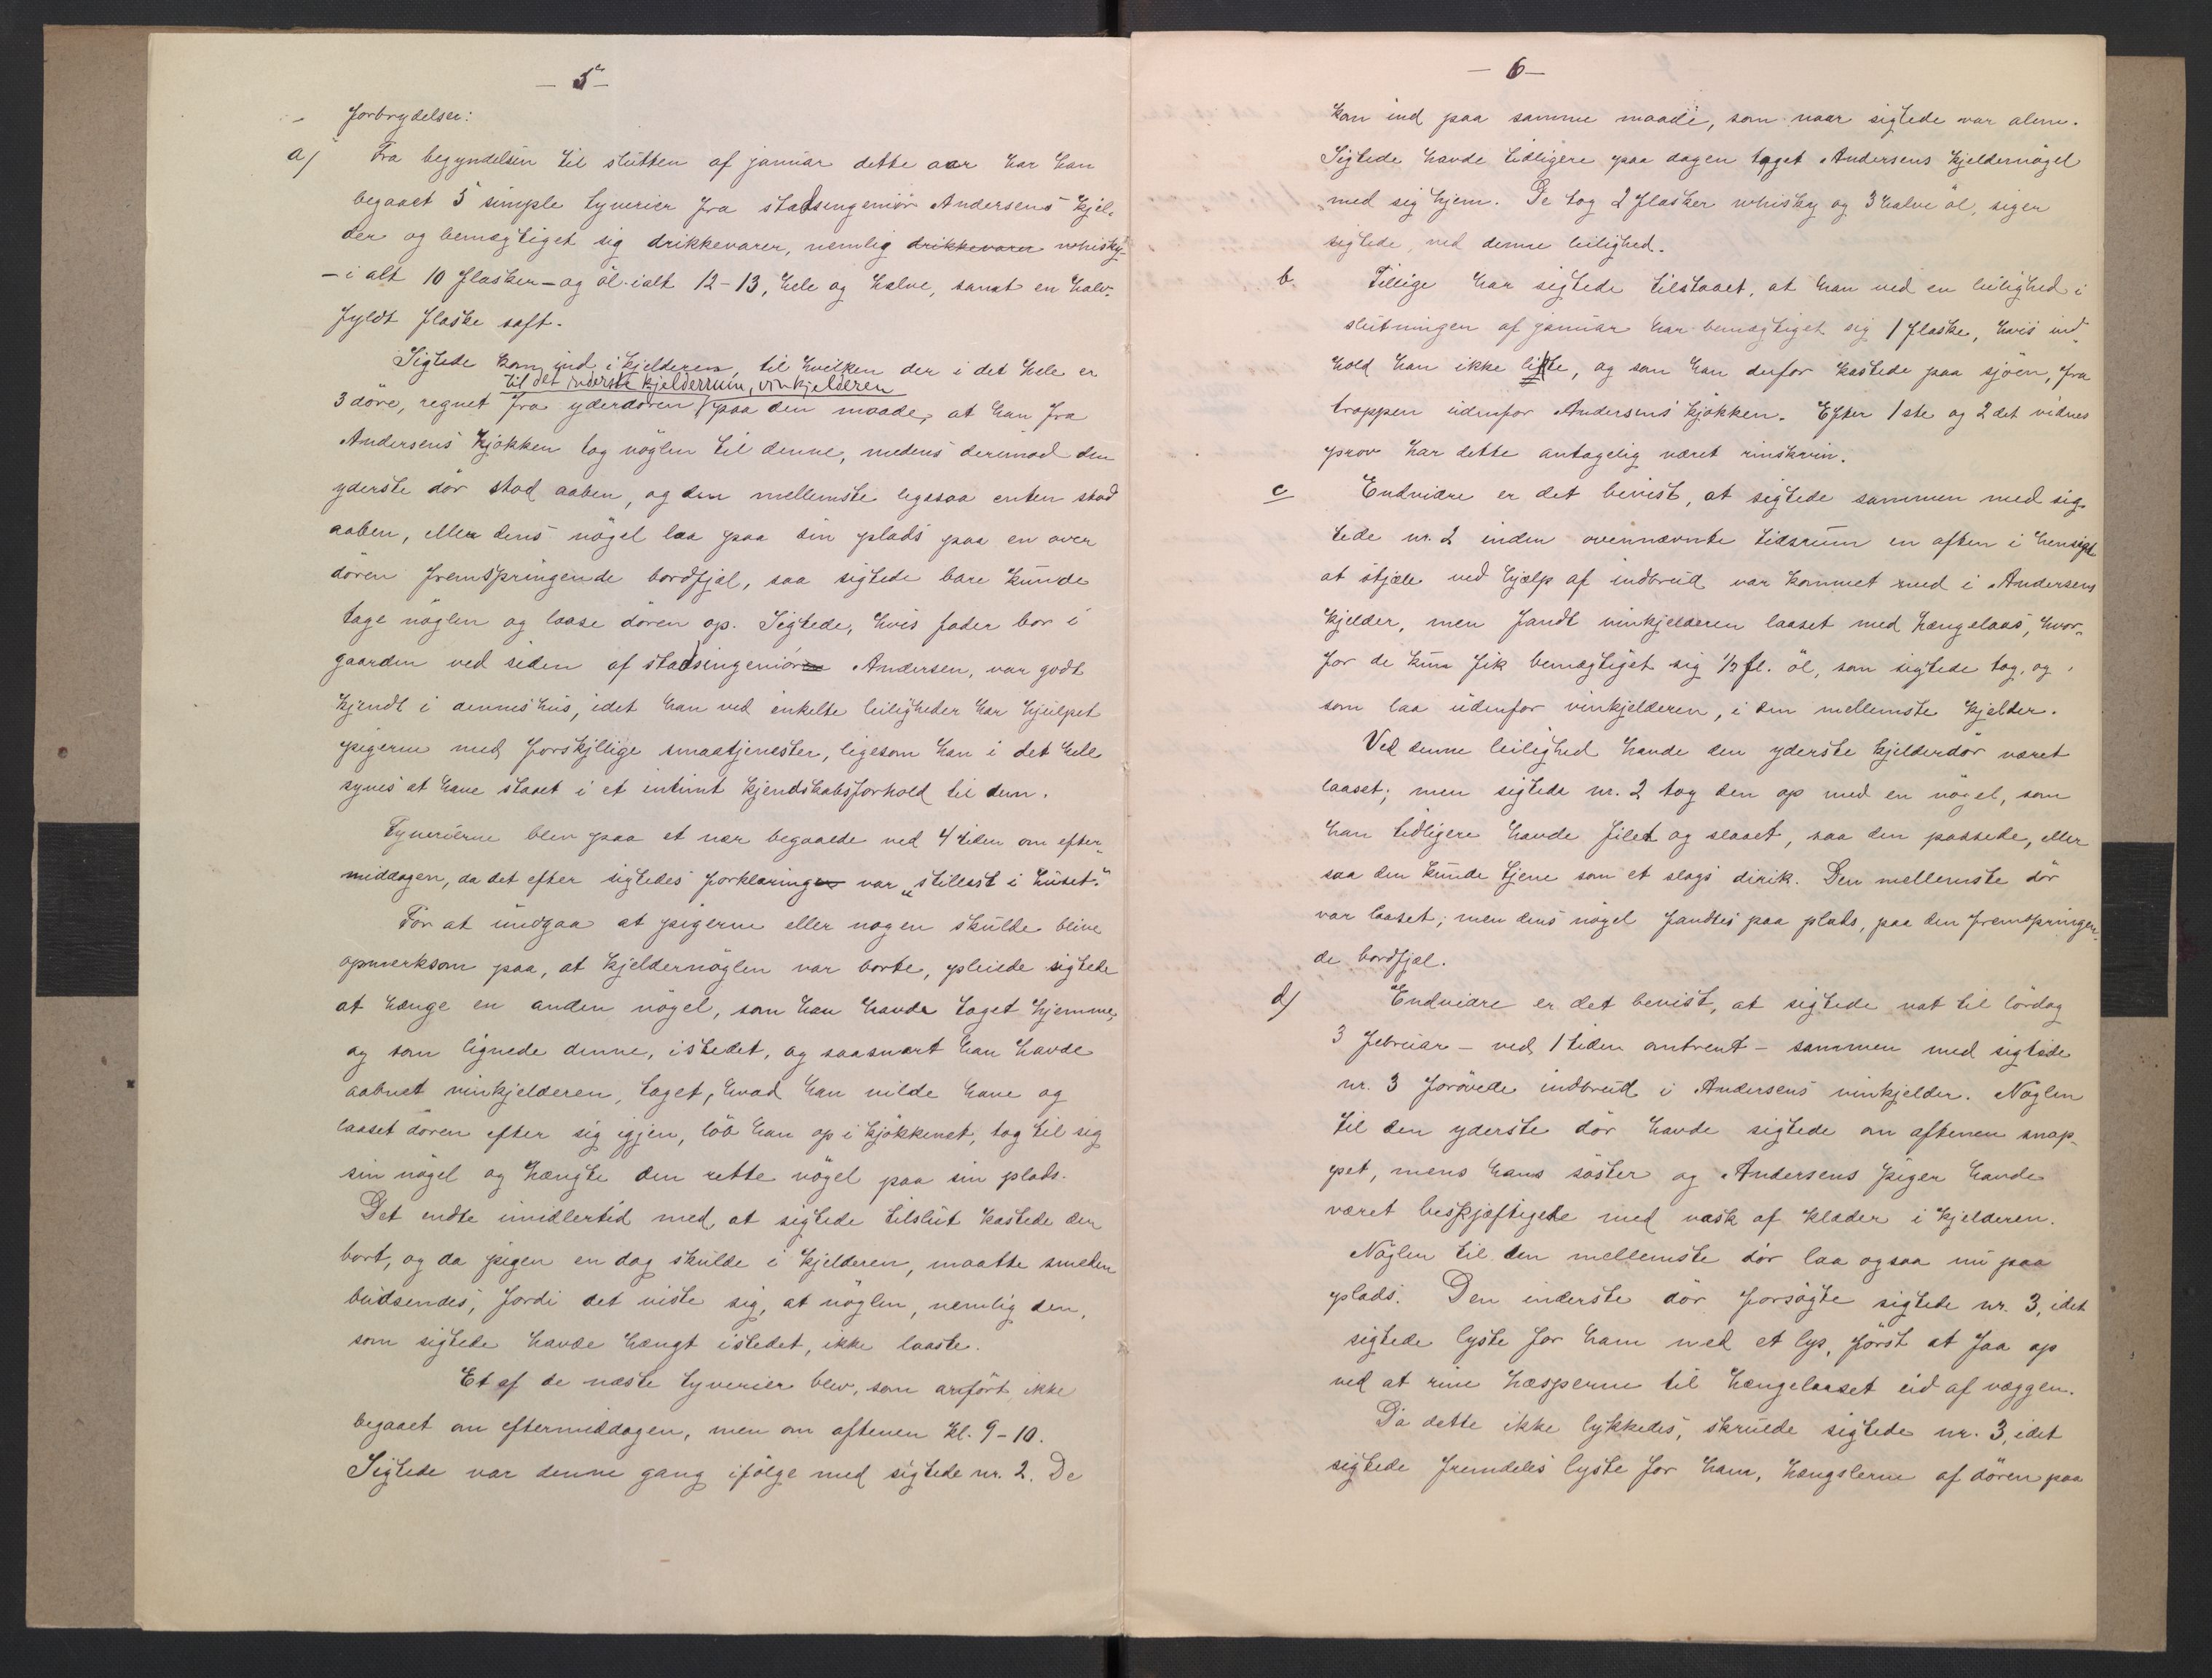 — 5 —
forbrydelser:
a) Fra begyndelsen til slutten af januar dette aar har han
begaaet 5 simple tyverier fra stadsingeniør Andersens kjel-
der og bemægtiget sig drikkevarer, nemlig drikkevarer whisky-
- i alt 10 flasker - og öl ialt 12-13, hele og halve, samt en halv-
fyldt flaske saft.
Sigtede kom ind i kjelderen, til hvilken der i det hele er
til det inderste kjelderrum, vinkjelderen
3 döre, regnet fra yderdören paa den maade, at han fra
Andersens kjökken tog nöglen til denne, medens derimod den
yderste dör stod aaben, og den mellemste ligesaa enten stod
aaben, eller dens nögel laa paa sin plads paa en over
dören fremspringende bordfjæl, saa sigtede bare kunde
tage nöglen og laase dören op. Sigtede, hvis fader bor i
gaarden ved siden af stadsingeniör Andersen, var godt
kjendt i dennes hus, idet han ved enkelte leiligheder har hjulpet
pigerne med forskjllige smaatjenester, ligesom han i det hele
synes at have staaet i et intimt kjendskabsforhold til dem.
Tyverierne blev paa et nær begaaede ved 4 tiden om efter-
middagen, da det efter sigtedes forklaringer var „stillest i huset."
For at undgaa at pigerne eller nogen skulde blive
opmerksom paa, at kjeldernöglen var borte, pleiede sigtede
at hænge en anden nögel, som han havde taget hjemme,
og som lignede denne, istedet, og saasnart han havde
aabnet vinkjelderen, taget, hvad han vilde have og
laaset dören efter sig igjen, löb han op i kjökkenet, tog til sig
sin nögel og hængte den rette nögel paa sin plads.
Det endte imidlertid med, at sigtede tilslut kastede den
bort, og da pigen en dag skulde i kjelderen, maatte smeden
budsendes, fordi det viste sig, at nöglen, nemlig den,
som sigtede havde hængt istedet, ikke laaste.
Et af de næste tyverier blev, som anfört, ikke
begaaet om eftermiddagen, men om aftenen kl. 9-10.
Sigtede var denne gang ifölge med sigtede nr. 2. De
— 6 —
kom ind paa samme maade, som naar sigtede var alene.
Sigtede havde tidligere paa dagen taget Andersens kjeldernögel
med sig hjem. De tog 2 flasker whisky og 3 halve öl, siger
sigtede, ved denne leilighed.
b. Tillige har sigtede tilstaaet, at han ved en leilighed i
slutningen af januar har bemægtiget sig 1 flaske, hvis ind-
hold han ikke likte, og som han derfor kastede paa sjöen, fra
trappen udenfor Andersens kjökken. Efter 1ste og 2det vidnes
prov har dette antagelig været rinskvin.
c Endvidre er det bevist, at sigtede sammen med sig-
tede nr. 2 inden ovennævnte tidsrum en aften i hensigt
at stjæle ved hjælp af indbrud var kommet ned i Andersens
kjelder, men fandt vinkjelderen laaset med hængelaas, hvor-
for de kun fik bemægtiget sig 1/2 fl. öl, som sigtede tog, og
som laa udenfor vinkjelderen, i den mellemste kjelder.
Ved denne leilighed havde den yderste kjelderdör været
laaset; men sigtede nr. 2 tog den op med en nögel, som
han tidligere havde filet og slaaet, saa den passede, eller
saa den kunde tjene som et slags dirik. Den mellemste dör
var laaset; men dens nögel fandtes paa plads, paa den fremspringen-
de bordfjæl.
d) Endvidre er det bevist, at sigtede nat til lördag
3 februar - ved 1 tiden omtrent - sammen med sigtede
nr. 3 forövede indbrud i Andersens vinkjelder. Nöglen
til den yderste dör havde sigtede om aftenen snap-
pet, mens hans söster og Andersens piger havde
været beskjæftigede med vask af klæder i kjelderen.
Nöglen til den mellemste dör laa ogsaa nu paa
plads. Den inderste dör forsögte sigtede nr. 3, idet
sigtede lyste for ham med et lys, först at faa op
ved at rive hæsperne til hængelaaset ud af væggen.
Da dette ikke lykkedes, skruede sigtede nr. 3, idet
sigtede fremdeles lyste for ham, hængslerne af dören paa